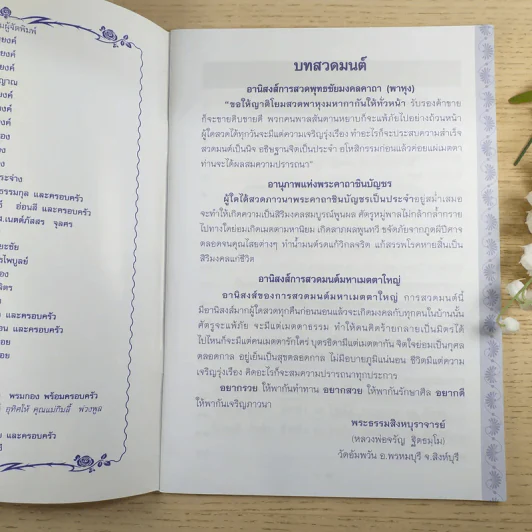 มผู้จัดพิมพ์
ยงค์
ยงค์
ยงค์
ญาณ
ยงค์
ยงค์
ยงค์
อง
ระจ่าง
ธรรมกุล และครอบครัว
อ่อนลี และครอบครัว
ส.เนตต์ภัสสร จุลคร
ยะชัย
รไพบูลย์
อง
จิตร
และครอบครัว
อน และครอบครัว
อย
อย
พรมกอง พร้อมครอบครัว
อุทิศให้ คุณแม่กิมลี้ พ่วงพูล
และครอบครัว
อย
บทสวดมนต์
อานิสงส์การสวดพุทธชัยมงคลคาถา (พาหุง)
"ขอให้ญาติโยมสวดพาหุงมหากากันให้ทั่วหน้า รับรองค้าขาย
ก็จะขายดิบขายดี พวกคนพาลสันดานหยาบก็จะแพ้ภัยไปอย่างถ้วนหน้า
ผู้ใดสวดได้ทุกวันจะมีแต่ความเจริญรุ่งเรือง ทำอะไรก็จะประสบความสำเร็จ
สวดมนต์เป็นนิจ อธิษฐานจิตเป็นประจำ อโหสิกรรมก่อนแล้วค่อยแผ่เมตตา
ท่านจะได้ผลสมความปรารถนา"
อานุภาพแห่งพระคาถาชินบัญชร
ผู้ใดได้สวดภาวนาพระคาถาชินบัญชรเป็นประจำอยู่สม่ำเสมอ
จะทำให้เกิดความเป็นสิริมงคลสมบูรณ์พูนผล ศัตรูหมู่พาลไม่กล้ากล้ำกราย
ไปทางใดย่อมเกิดเมตตามหานิยม เกิดลาภผลพูนทวี ขจัดภัยจากภูตผีปีศาจ
ตลอดจนคุณไสยต่างๆ ทำน้ำมนต์รดแก้วิกลจริต แก้สรรพโรคหายสิ้นเป็น
สิริมงคลแก่ชีวิต
อานิสงส์การสวดมนต์มหาเมตตาใหญ่
อานิสงส์ของการสวดมนต์มหาเมตตาใหญ่ การสวดมนต์นี้
มีอานิสงส์มากผู้ใดสวดทุกคืนก่อนนอนแล้วจะเกิดมงคลกับทุกคนในบ้านนั้น
ศัตรูจะแพ้ภัย จะมีแต่เมตตาธรรม ทำให้คนคิดร้ายกลายเป็นมิตรได้
ไปไหนก็จะมีแต่คนเมตตารักใคร่ บุตรธิดามีแต่เมตตากัน จิตใจย่อมเป็นกุศล
ตลอดกาล อยู่เย็นเป็นสุขตลอดกาล ไม่มีอบายภูมิแน่นอน ชีวิตมีแต่ความ
เจริญรุ่งเรือง คิดอะไรก็จะสมความปรารถนาทุกประการ
อยากรวย ให้พากันทำทาน อยากสวย ให้พากันรักษาศีล อยากดี
ให้พากันเจริญภาวนา
พระธรรมสิงหบุราจารย์
(หลวงพ่อจรัญ ฐิตธมฺโม)
วัดอัมพวัน อ.พรหมบุรี จ.สิงห์บุรี